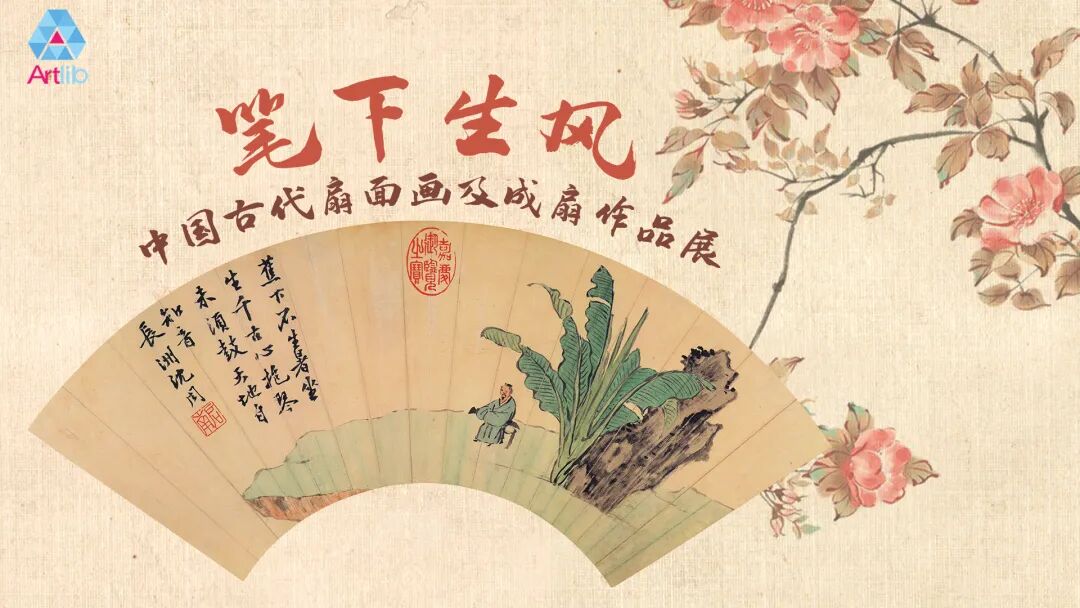 Artlib
笔下生风
中国古代扇面画及成扇作品展
嘉慶
御覽
之寶
蕉下不生暑坐
生千古心抱琴
未須鼓天地自
知音
長洲沈周